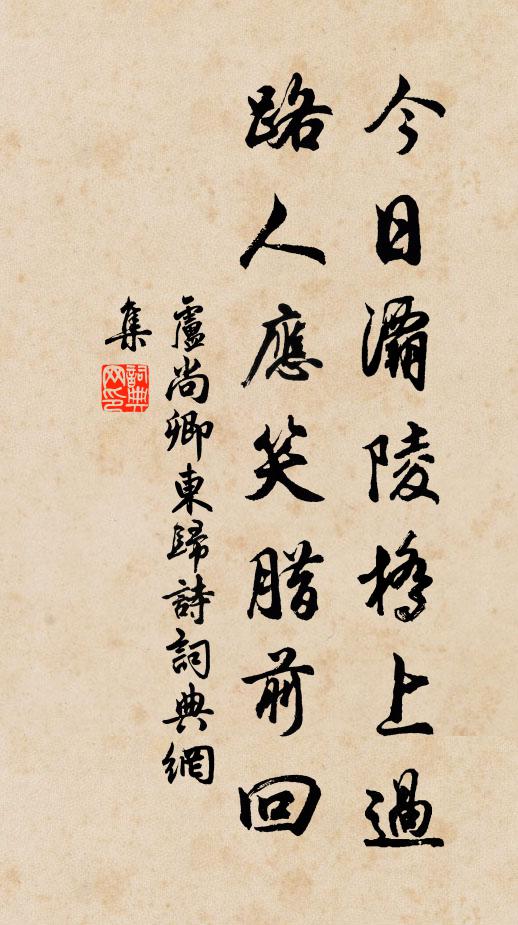 今日灞陵橋上過
路人應笑腊前回
盧尚卿東歸詩詞典網
集
詞典网印